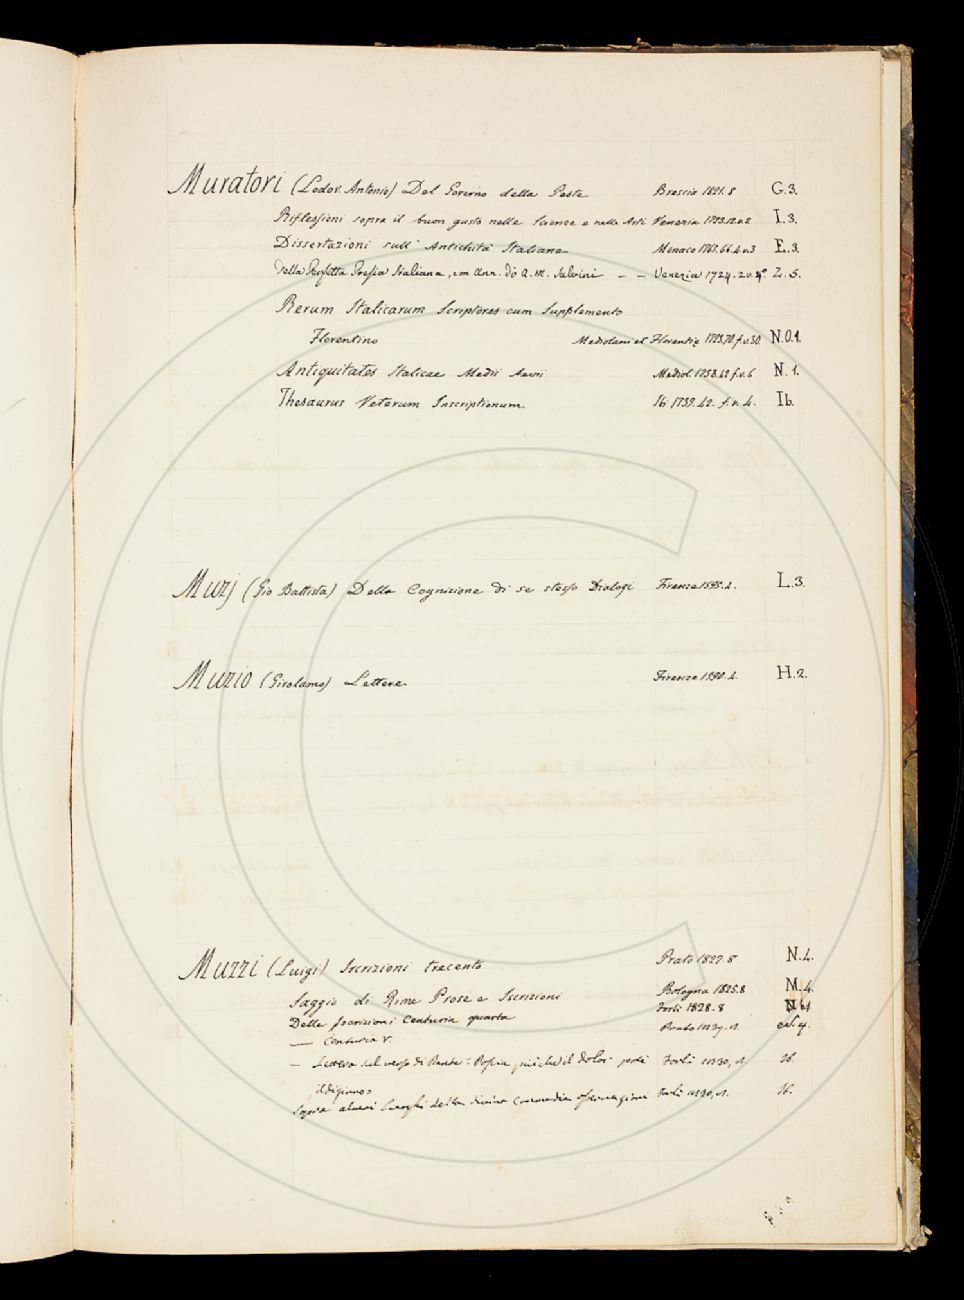 Muratori (Lodov. Antonio) Del Governo della Peste Brescia 1821. 8 G. 3.
Riflessioni sopra il buon gusto nelle Scienze e nelle Arti Venezia I. 3.
Dissertazioni sull' Antichità Italiane Monaco 1765. 66. 4. v. 3 E. 3.
Della Perfetta Poesia Italiana, con Ann. di A. M. Salvini – – Venezia 1724. 2 v. 4º. Z. 5.
Rerum Italicarum Scriptores cum Supplemento
Florentino Mediolani et Florentiæ 1723. 70. f. v. 30. N. O. 1.
Antiquitates Italicae Medii Aevii Mediol. 1738. 42 f. v. 6 N. 1.
Thesaurus Veterum Inscriptionum. Ib. 1739. 42. f. v. 4. Ib.
Muzj (Gio Battista) Della Cognizione di se stesso Dialogi Firenze 1595. 4. L. 3.
Muzio (Girolamo) Lettere Firenze 1590. 4. H. 2.
Muzzi (Luigi) Iscrizioni trecento Prato 1827. 8 N. 4.
Saggio di Rime Prose e Iscrizioni Bologna 1825. 8 M. 4.
Delle Iscrizioni Centuria quarta Forlì 1828. 8
— Centuria V. Prato
— Lettera sul verso di Dante: Poscia, più che il dolor potè Forlì 1830, 8. Ib.
il digiuno
Sopra alcuni luoghi della divina Commedia osservazioni Forlì 1830, 8. Ib.